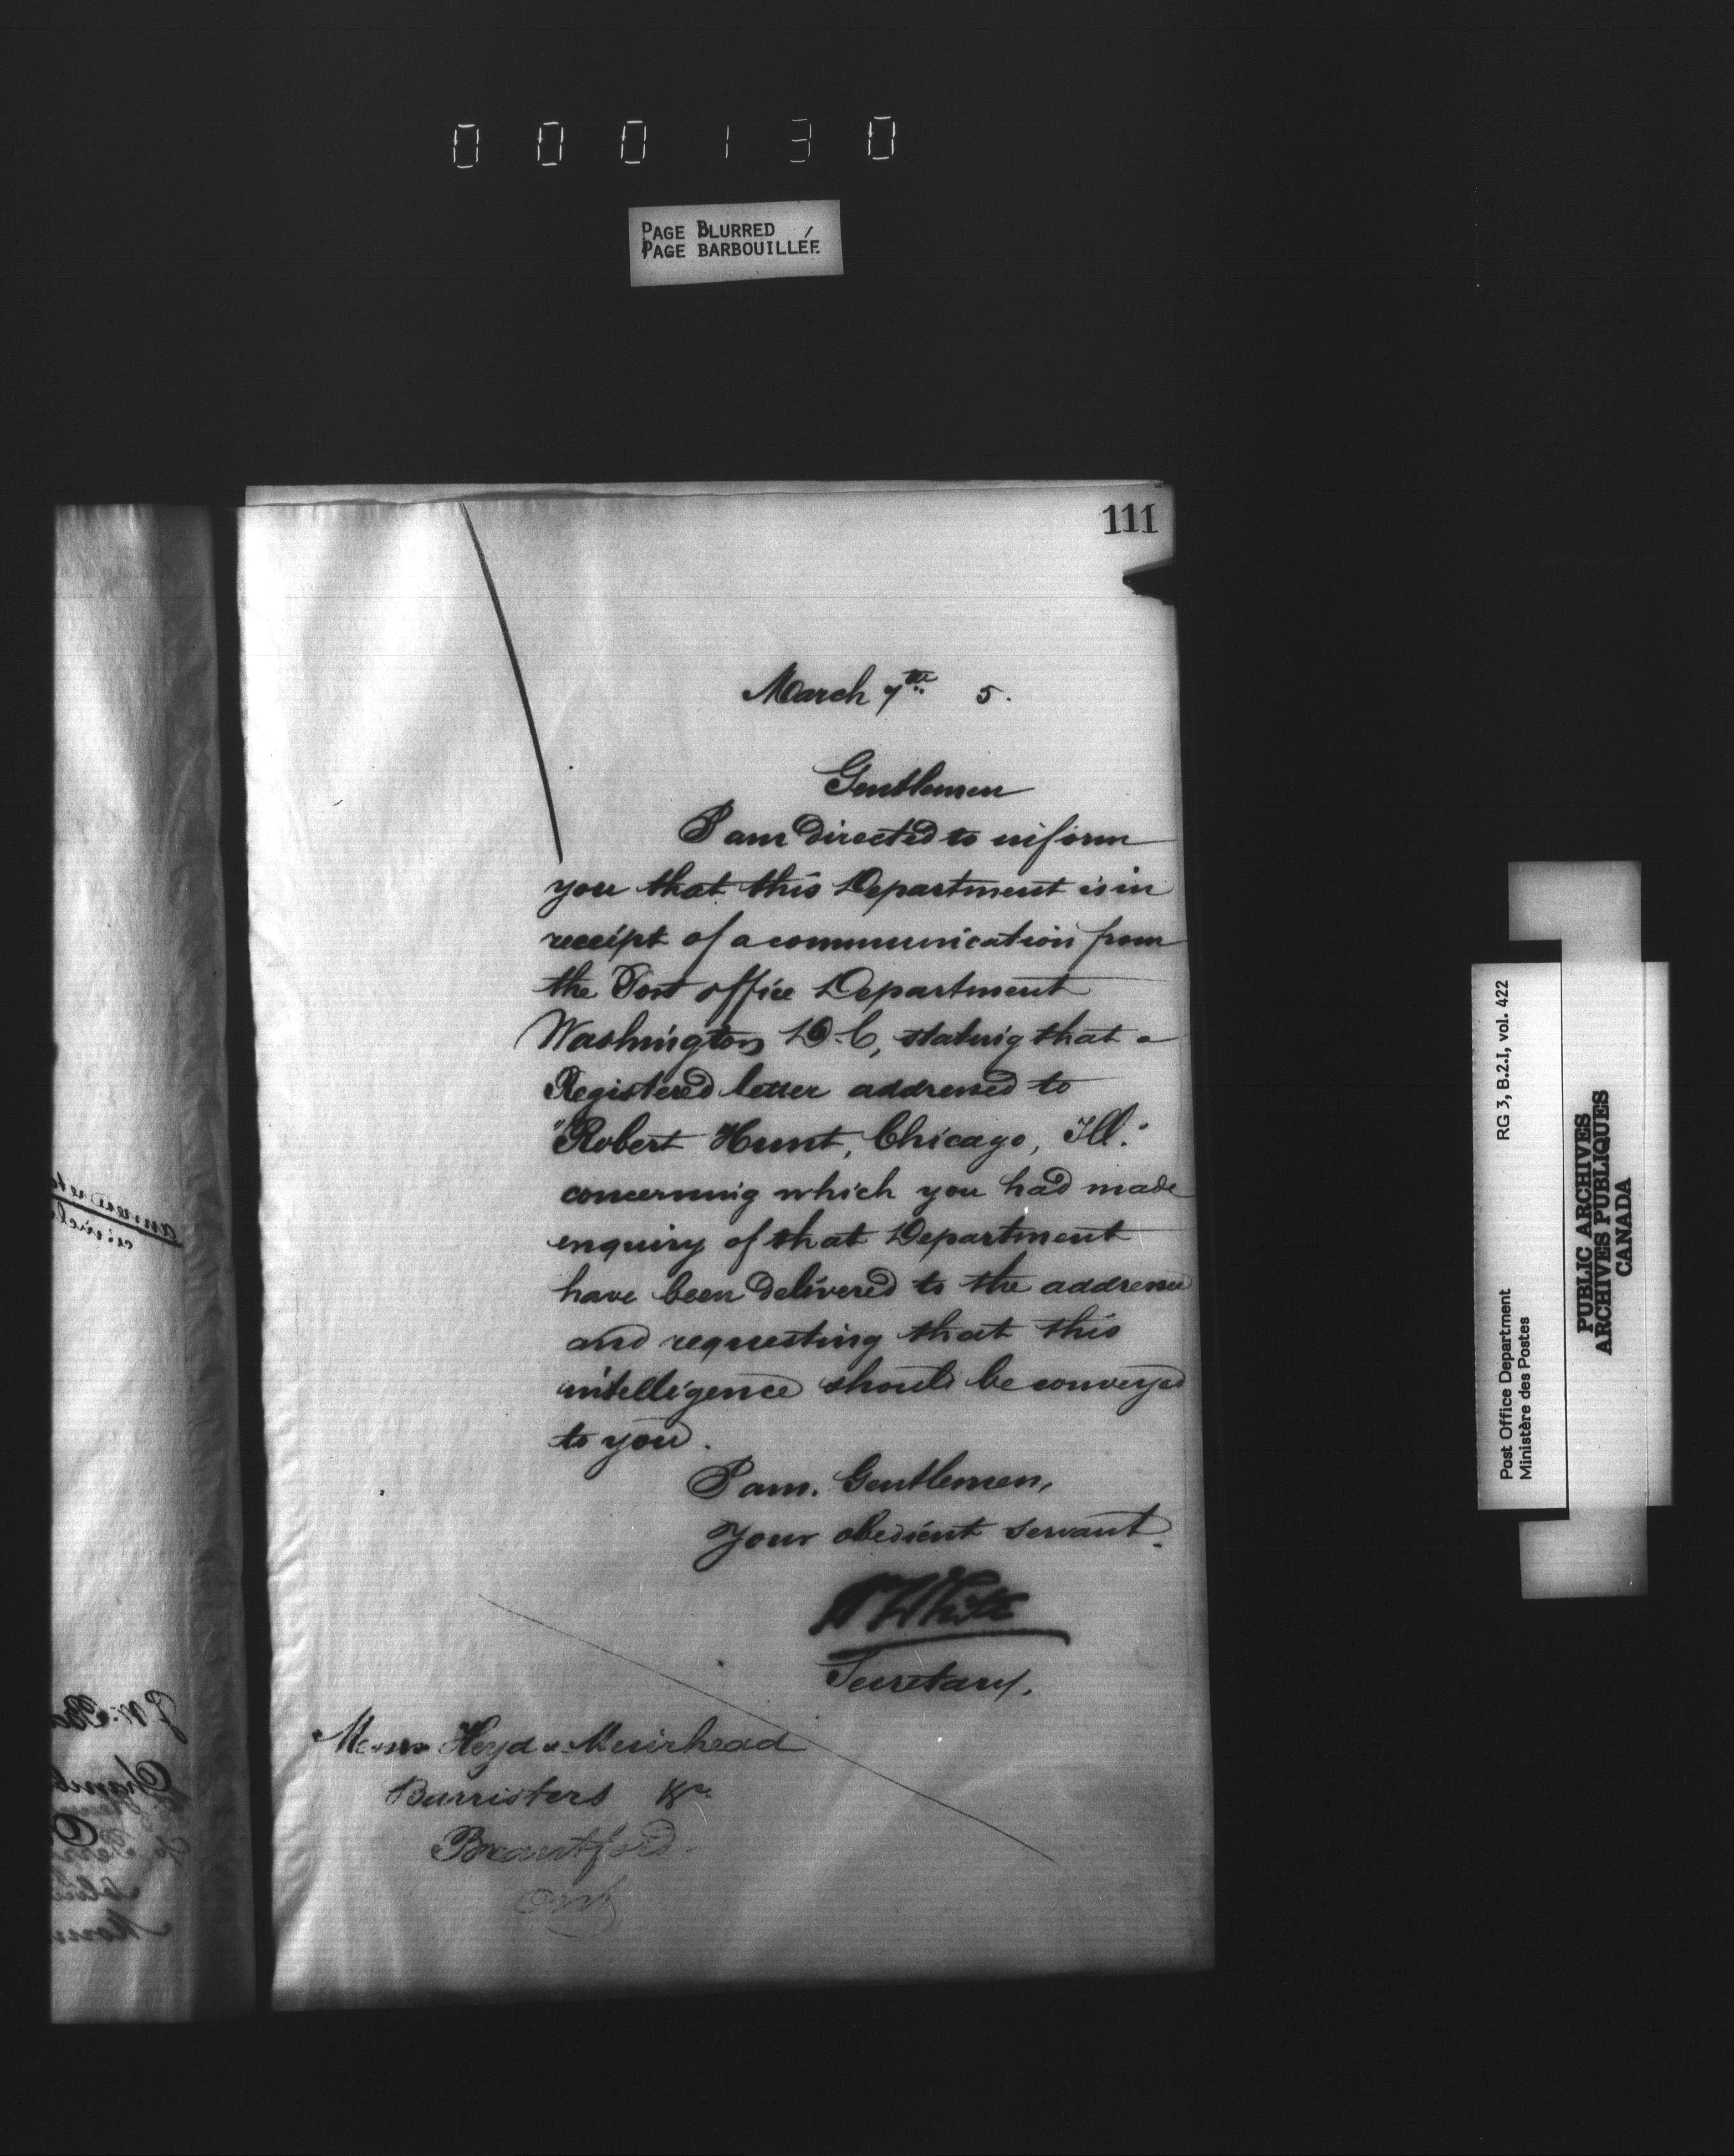 000130
PAGE BLURRED
PAGE BARBOUILLÉE
111
March 7th 5.
Gentlemen
I am directed to inform
you that this Department is in
receipt of a communication from
the Post Office Department
Washington D.C, stating that a
Registered letter addressed to
"Robert Hunt, Chicago, Ill."
concerning which you had made
enquiry of that Department
have been delivered to the addressee
and requesting that this
intelligence should be conveyed
to you.
I am. Gentlemen,
Your obedient servant.
White
Secretary.
Messrs Heyd & Muirhead
Barristers &c.
Brantford.
Ont
RG 3, B.2.I, vol. 422
Post Office Department
Ministère des Postes
PUBLIC ARCHIVES
ARCHIVES PUBLIQUES
CANADA